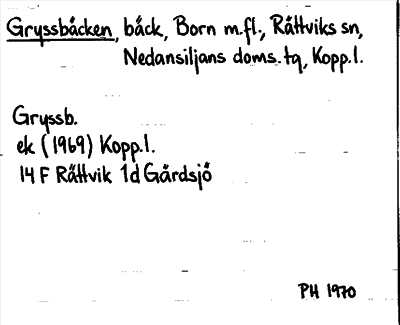 Gryssbäcken, bäck, Born m.fl., Rättviks sn,
Nedansiljans doms. tg, Kopp.l.
Gryssb.
ek (1969) Kopp.l.
14 F Rättvik 1d Gärdsjö
PH 1970